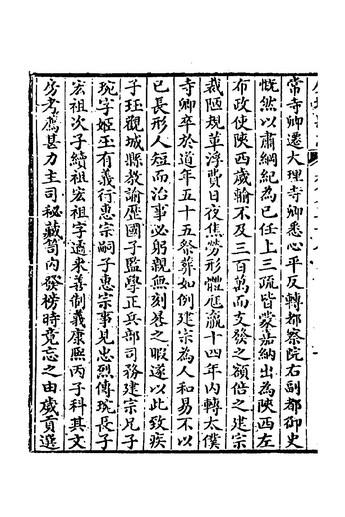 常寺卿遷大理寺卿悉心平反轉都察院右副都御史
慨然以肅綱紀為已任上三疏皆蒙嘉納出為陝西左
布政使陝西歲輸不及三百萬而支發之額倍之建宗
裁陋規革浮費日夜焦勞形體尪羸十四年內轉太僕
寺卿卒於道年五十五祭葬如例建宗為人和易不以
已長形人短而治事必躬親無刻晷之暇遂以此致疾
子珏觀城縣教諭歷國子監學正兵部司務建宗兄子
琬字姬玉有義行惠宗嗣子惠宗事見忠烈傳琬長子
宏祖次子續祖宏祖字適来善制義康熙丙子科其文
房考薦甚力主司秘藏笥內發榜時竟忘之由歲貢選